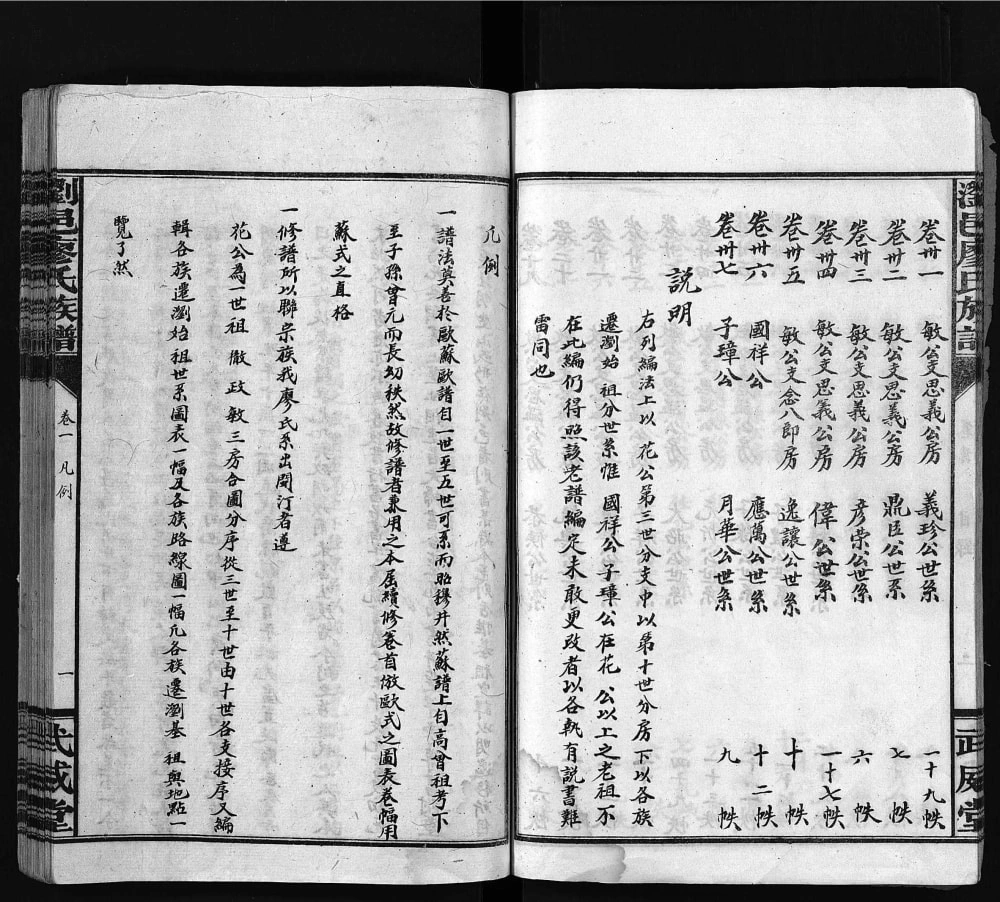 瀏邑廖氏族譜
卷卅一 敏公支思義公房 義珍公世系 一十九帙
卷卅二 敏公支思義公房 鼎臣公世系 七帙
卷卅三 敏公支思義公房 彥榮公世系 六帙
卷卅四 敏公支思義公房 偉公世系 一十七帙
卷卅五 敏公支念八郎房 逸讓公世系 十帙
卷卅六 國祥公 應萬公世系 十二帙
卷卅七 子璋公 月華公世系 九帙
說明
右列編法上以 花公第三世分支中以第十世分房下以各族
遷瀏始 祖分世系惟 國祥公子璋公在花 公以上之老祖不
在此編仍得照該老譜編定未敢更改者以各執有說書難
雷同也
武威堂
凡例
一譜法莫善於歐蘇歐譜自一世至五世可系而昭穆井然蘇譜上自高曾祖考下
至子孫曾元而長幼秩然故修譜者兼用之本屆續修卷首倣歐式之圖表卷幅用
蘇式之直格
一修譜所以聯宗族我廖氏系出閩汀者遵
花公為一世祖 散政敏三房合圖分序從三世至十世由十世各支接序又編
輯各族遷瀏始祖世系圖表一幅及各族路線圖一幅凡各族遷瀏基 祖與地點一
覽了然
瀏邑廖氏族譜
卷一 凡例
一
武威堂